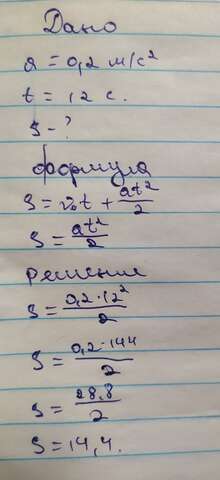 Дано
a = 0,2 м/с²
t = 12 с.
S - ?
формула
S = v₀t + at²/2
S = at²/2
решение
S = 0,2·12²/2
S = 0,2·144/2
S = 28,8/2
S = 14,4.